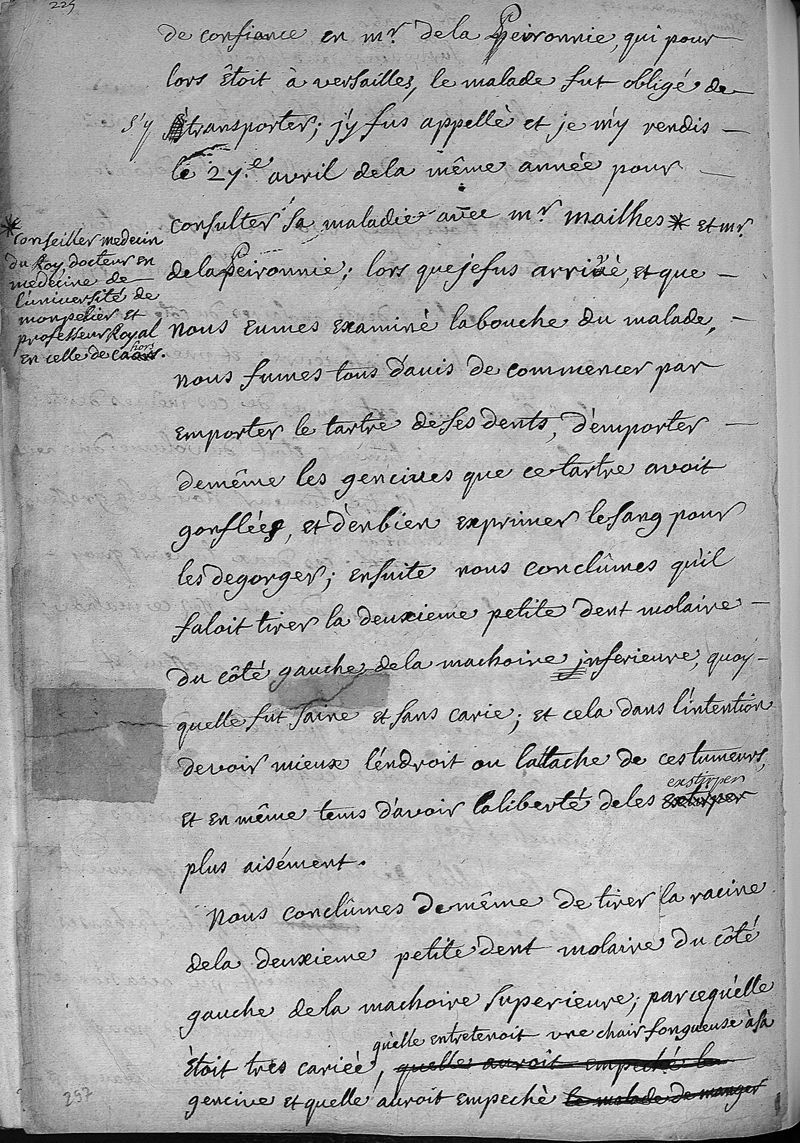 225
de confiance en mr. de la Peironnie, qui pour
lors étoit à versailles, le malade fut obligé de
s'y transporter; j'y fus appellé et je m'y rendis
le 27.e avril dela même année pour
consulter sa maladie avec mr. mailhes * et mr.
* conseiller medecin
du Roy, docteur en
medecine de
l'université de
monpelier et
professeur Royal
en celle de cahors.
dela Peironnie; lors que je fus arrivé, et que
nous eumes examiné la bouche du malade,
nous fumes tous d'avis de commencer par
emporter le tartre de ses dents, d'emporter
demême les gencives que ce tartre avoit
gonflées, et d'en bien exprimer le sang pour
les degorger; ensuite nous conclûmes qu'il
faloit tirer la deuxieme petite dent molaire
du côté gauche de la machoire inferieure, quoy-
quelle fut saine et sans carie; et cela dans l'intention
devoir mieux l'endroit ou l'attache de ces tumeurs,
et en même tems d'avoir la liberté deles extirper exstirper
plus aisément.
Nous conclûmes de même de tirer la racine
dela deuxieme petite dent molaire du côté
gauche de la machoire superieure; parcequ'elle
qu'elle entretenoit une chair fongueuse à sa
étoit tres cariée, quelle auroit empeché le
gencive et quelle auroit empeché le malade de manger
297